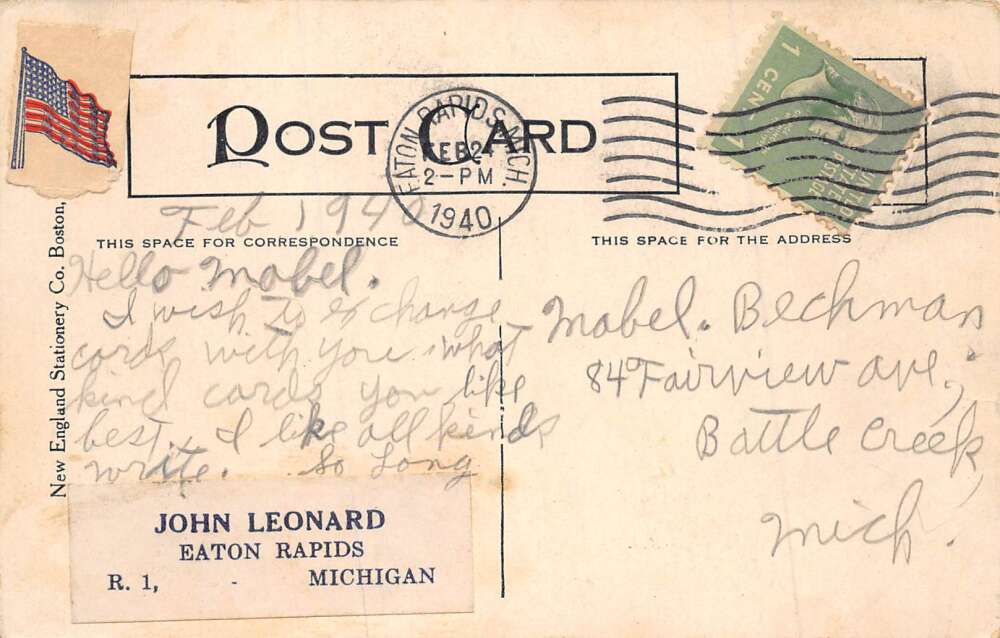 POST CARD
EATON RAPIDS, MICH.
FEB 24
2-PM
1940
1 CENT 1
Feb 1940
THIS SPACE FOR CORRESPONDENCE
THIS SPACE FOR THE ADDRESS
New England Stationery Co. Boston,
Hello Mabel.
I wish to exchange
cards with you. what
kind cards you like
best. I like all kinds
write. So Long
JOHN LEONARD
EATON RAPIDS
R. 1, - MICHIGAN
Mabel. Beckman
84 Fairview ave,
Battle Creek,
Mich.